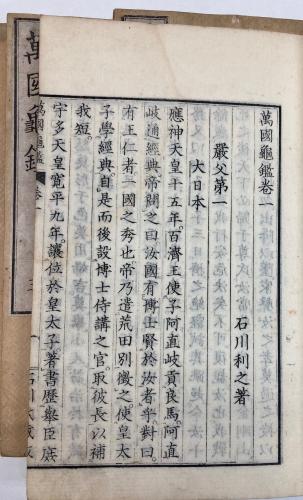 萬國龜鑑卷一
石川利之著
嚴父第一
大日本
應神天皇十五年。百濟王使子阿直岐貢良馬。阿直
岐通經典。帝聞之曰汝國有博士賢於汝者乎。對曰。
有王仁者。三國之秀也。帝乃遣荒田別徵之使皇太
子學經典。自是而後設博士侍講之官。取彼長以補
我短。
宇多天皇寬平九年。讓位於皇太子。著書歷舉臣庶
萬國龜鑑
卷一
一
萬國龜鑑